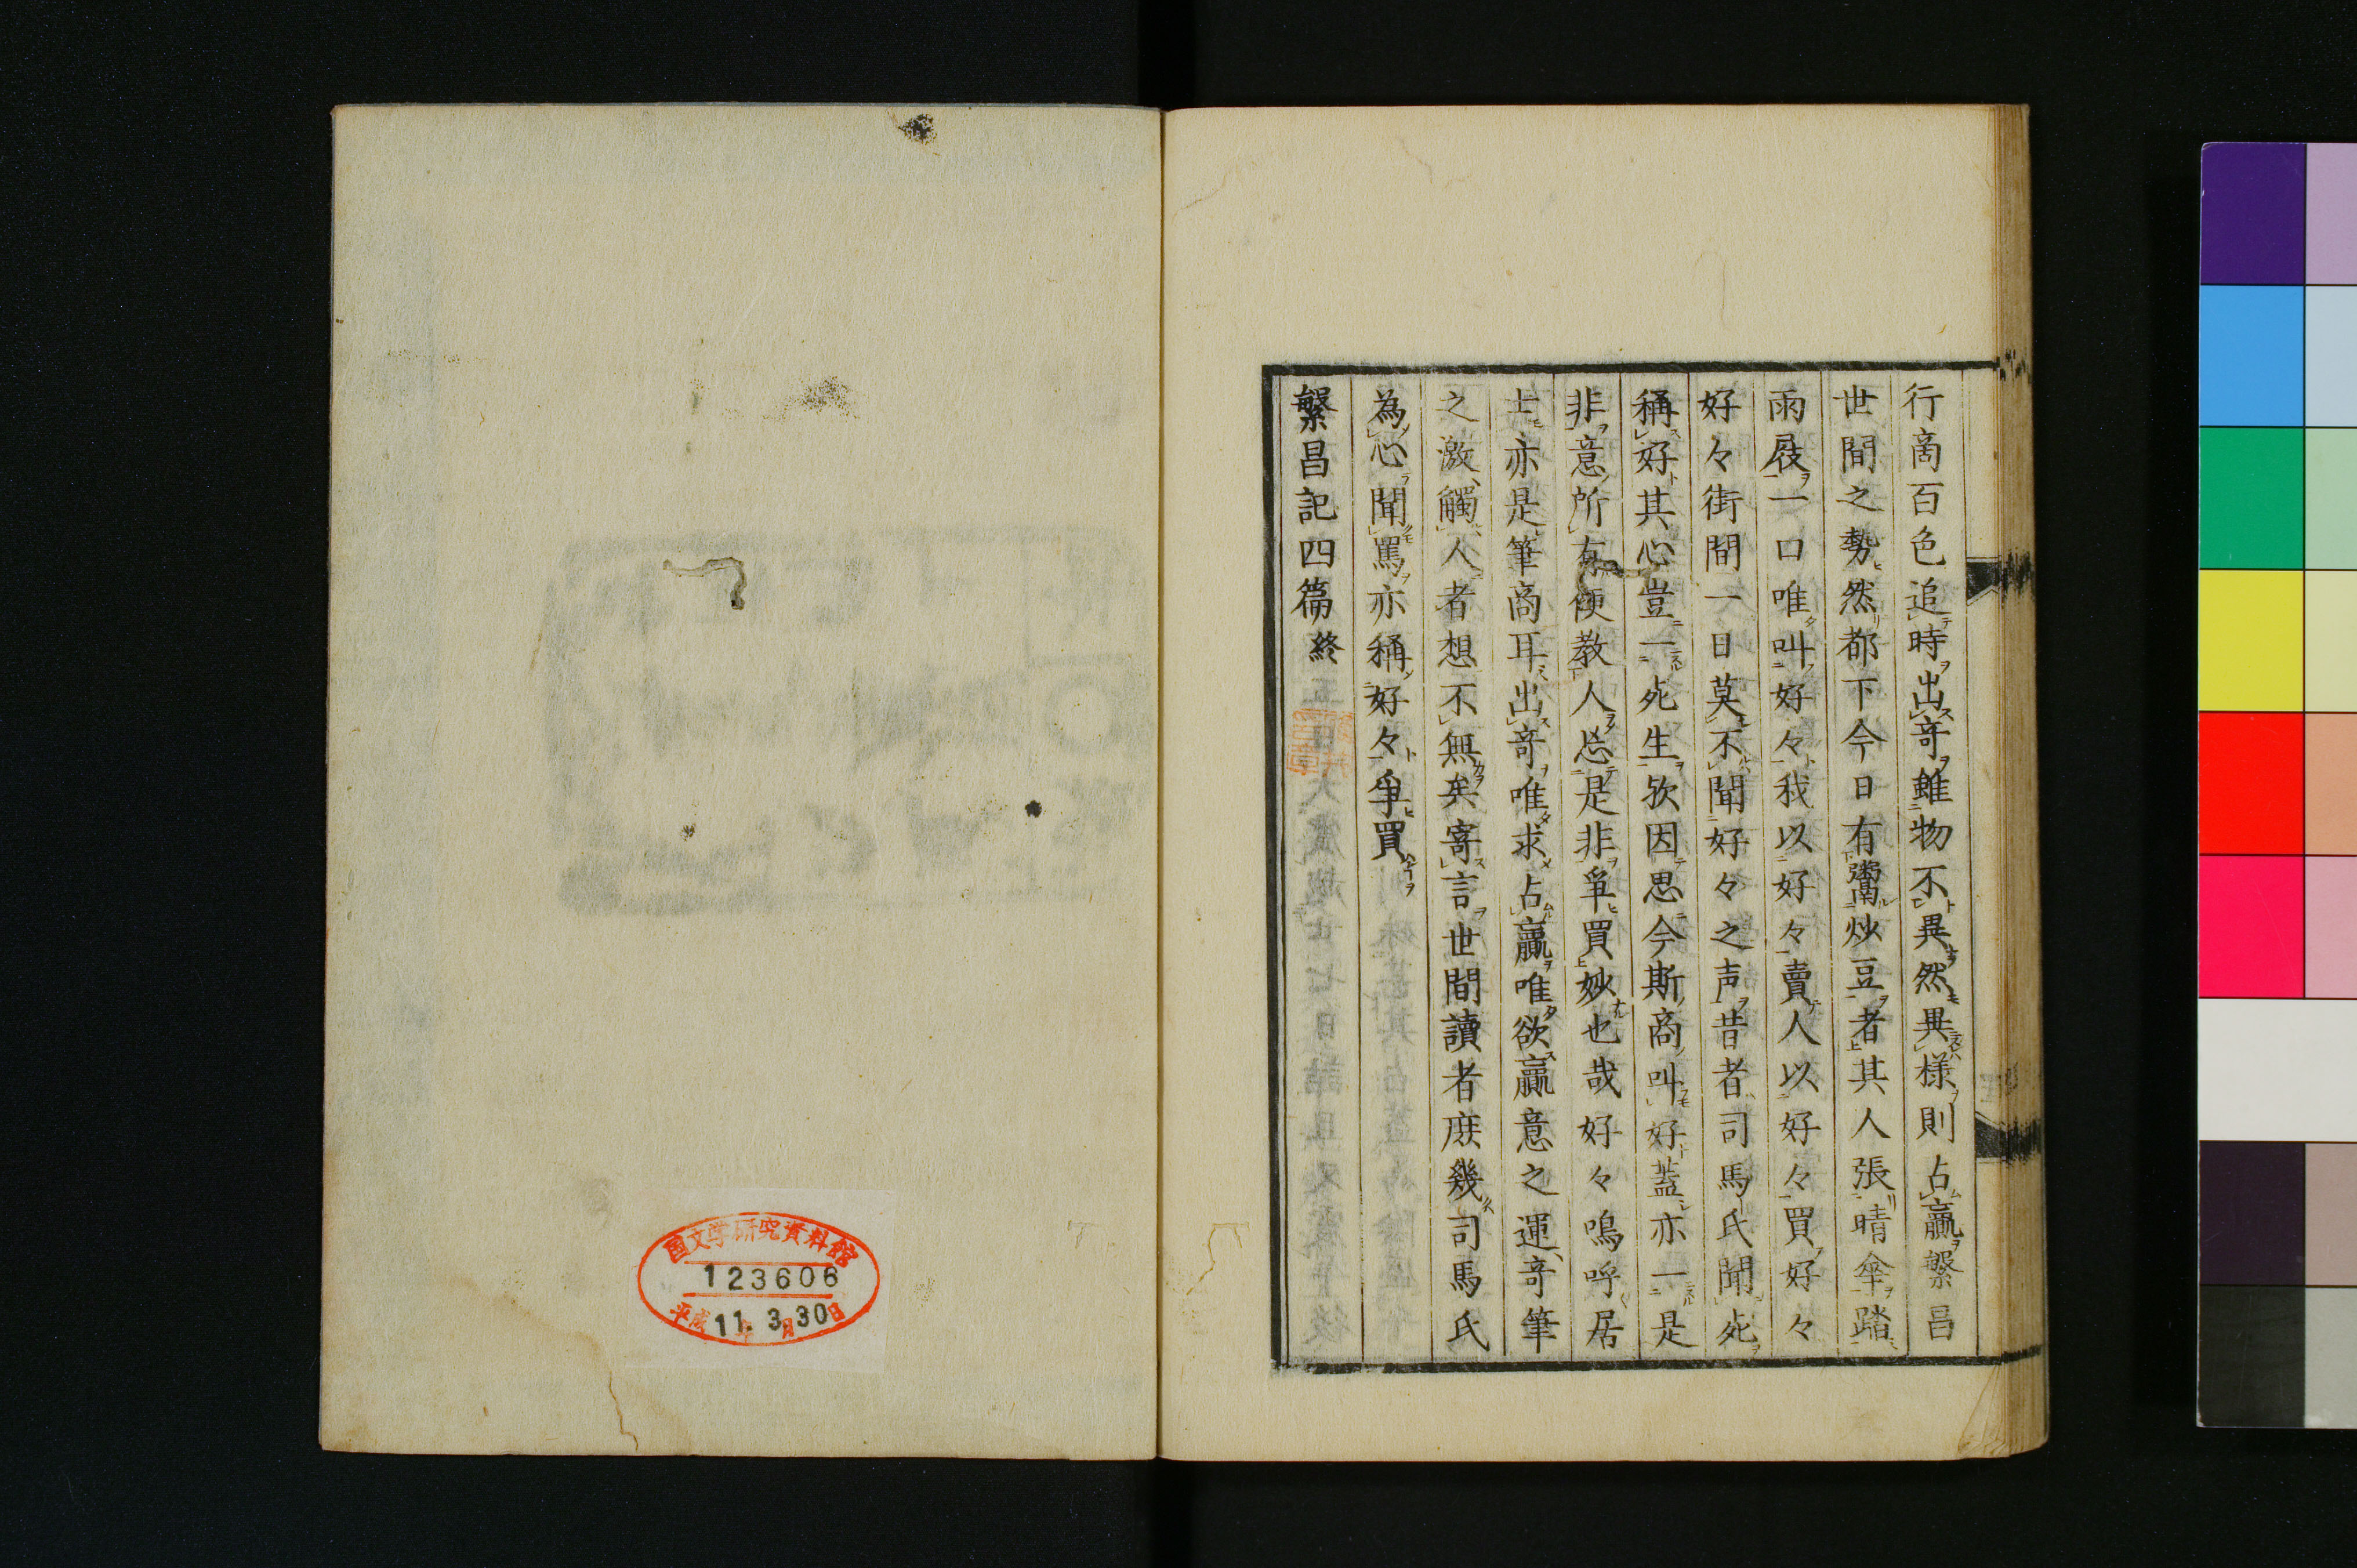 行商百色追時出竒雖物不異然異様則占贏繁昌
世間之勢然都下今日有鬻炒豆者其人張晴傘踏
雨屐一口唯叫好々我以好々賣人以好々買好々
好々街間一日莫不聞好々之声昔者司馬氏聞死
稱好其心豈一死生欤因思今斯商叫好蓋亦一是
非意所有便教人忘是非爭買妙也哉好々嗚呼居
士亦是筆商耳出竒唯求占贏唯欲贏意之運竒筆
之激觸人者想不無矣寄言世間讀者庶幾司馬氏
為心聞罵亦稱好々爭買
繁昌記四篇終
国文学研究資料館
123606
平成11年3月30日